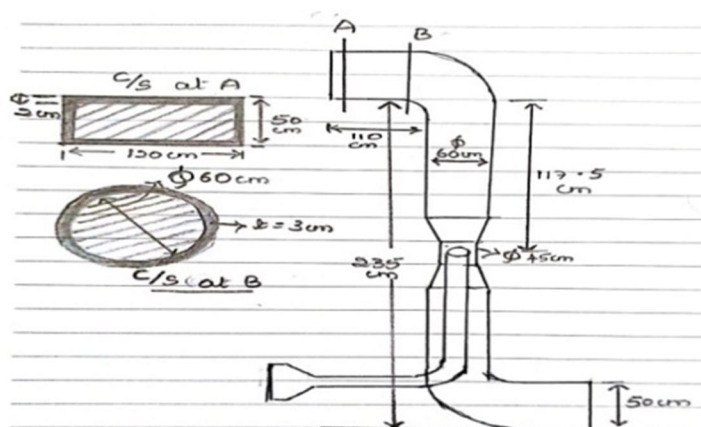 A
B
C/S at A
2 cm
50
cm
130cm
110
cm
ϕ
60cm
117.5
cm
ϕ 60cm
t = 3cm
C/S at B
235
cm
ϕ 45cm
50cm